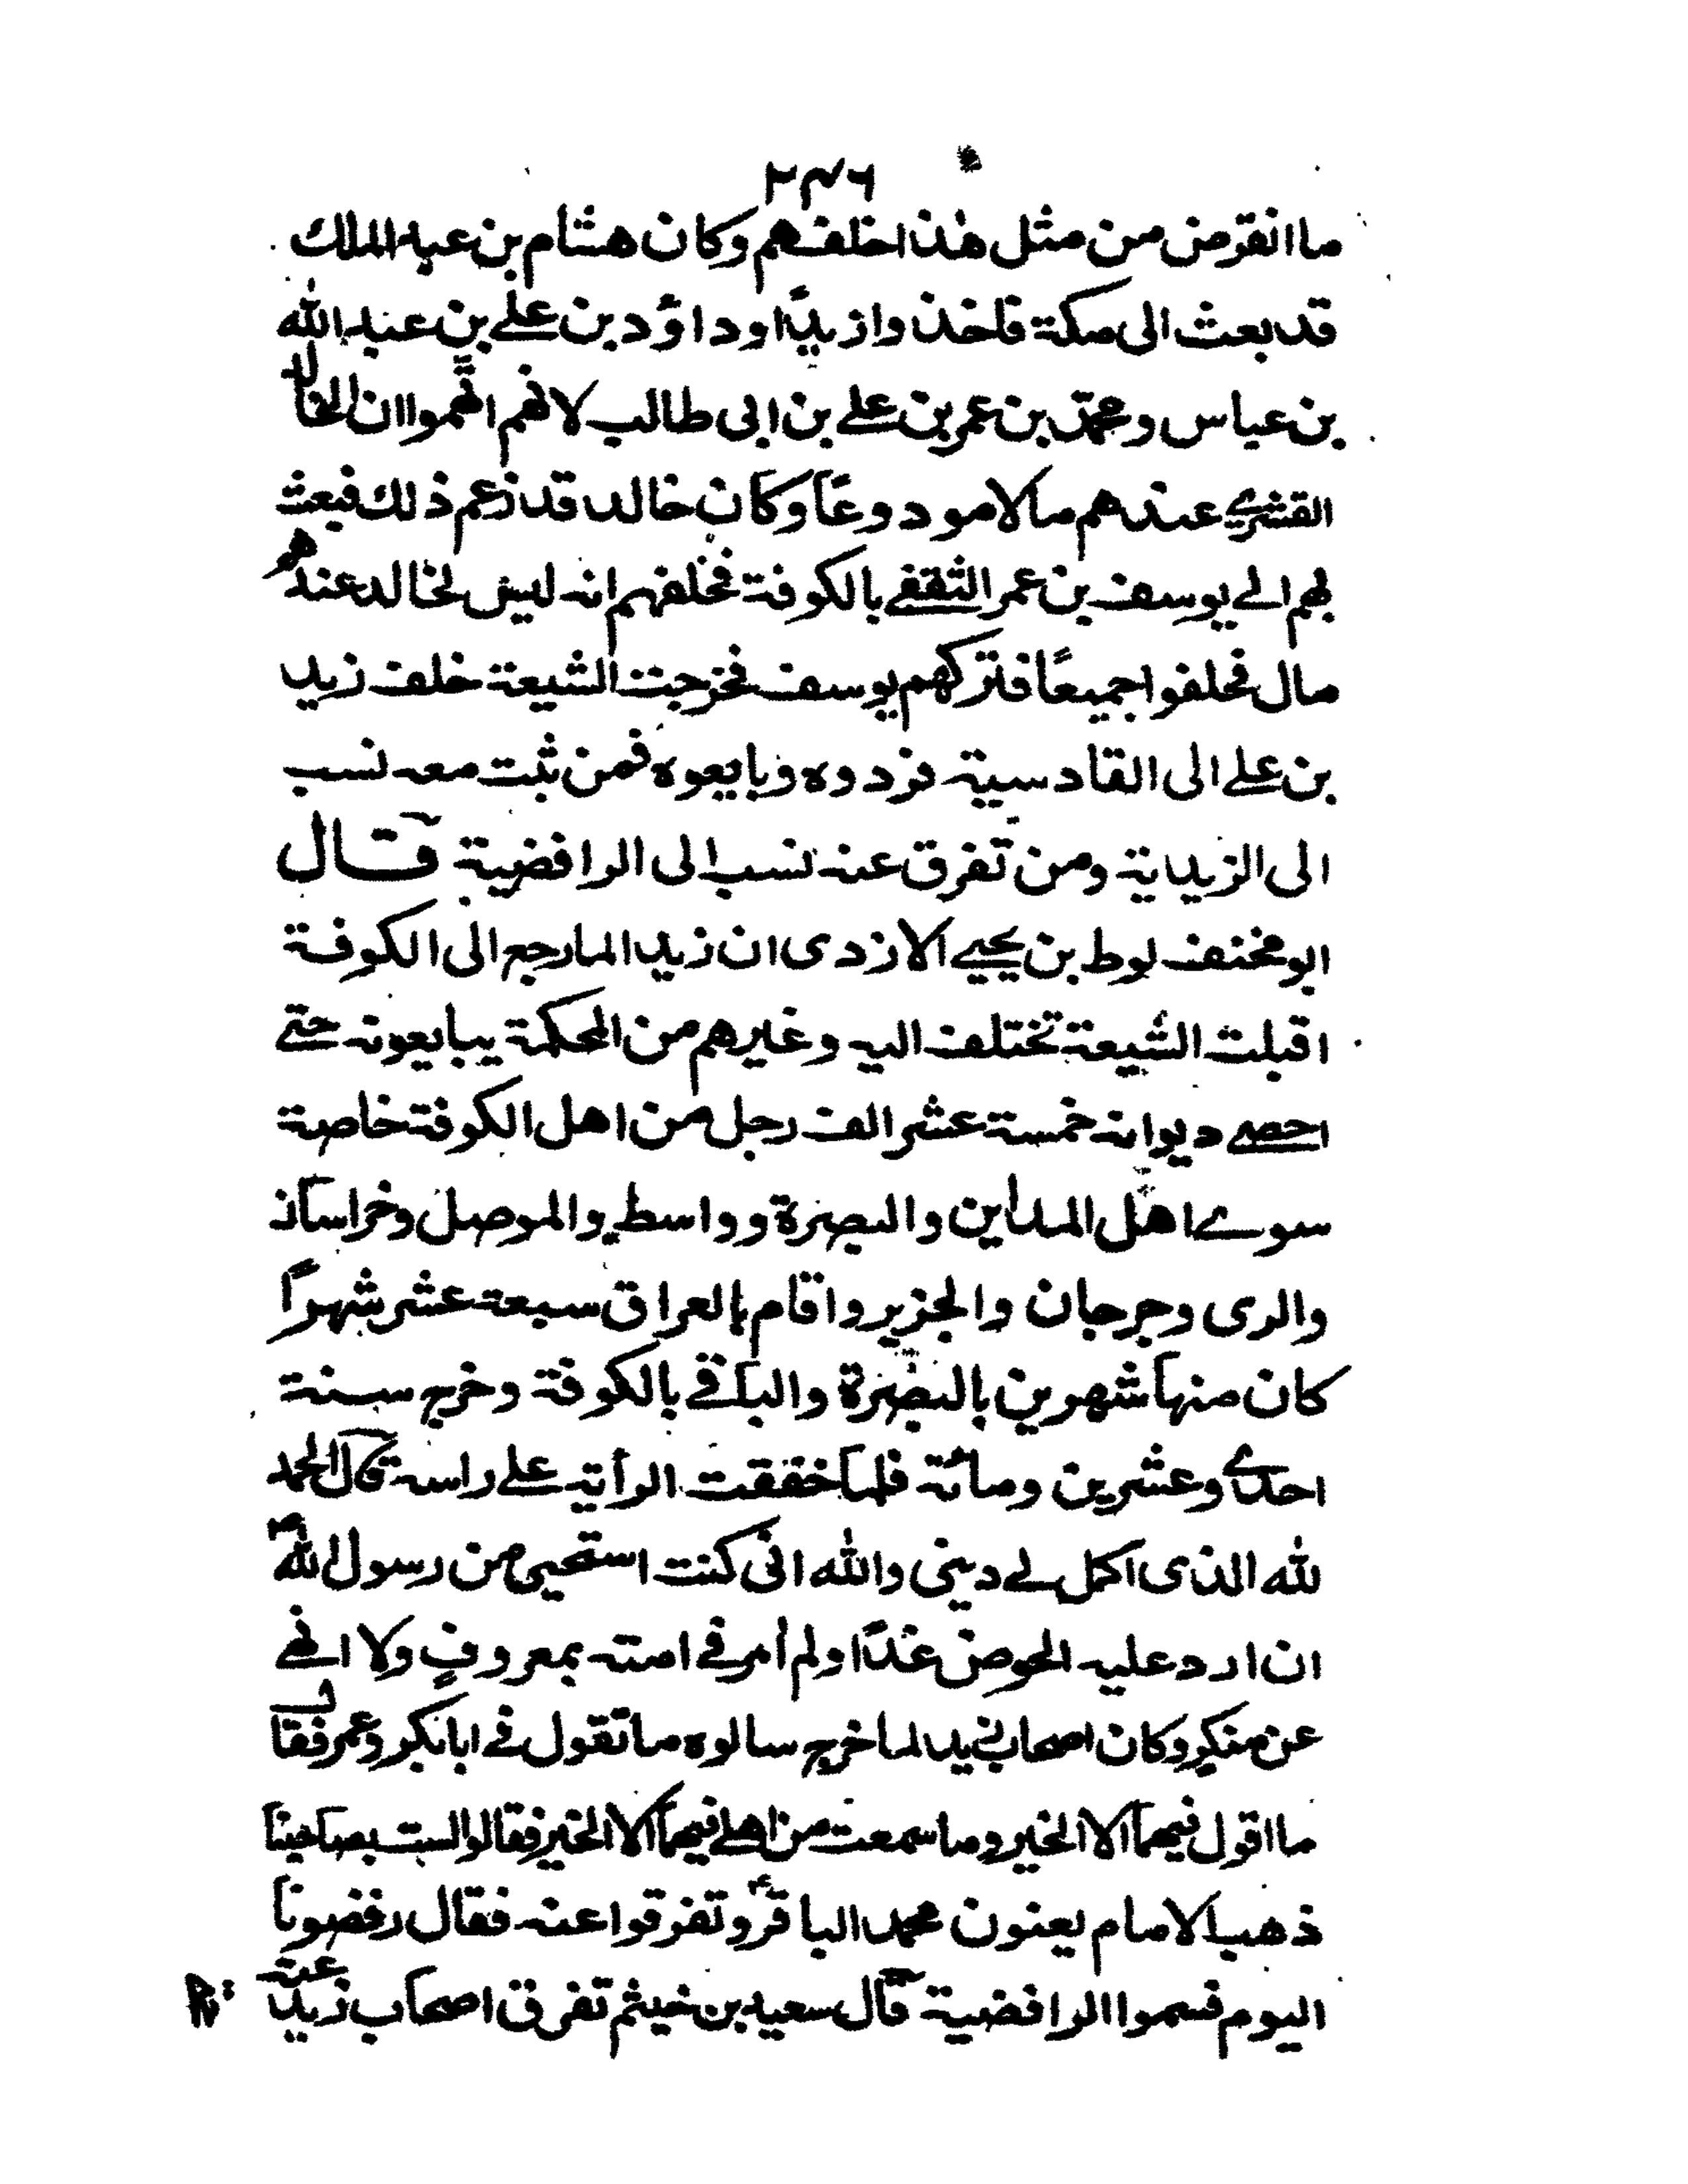 ٢٤٦
ما انقرض من مثل هذا اخلفهم وكان هشام بن عبد الملك
قد بعث الى مكة فاخذ وا زيدًا وداؤد بن علے بن عبد الله
بن عباس ومحمّد بن عمر بن علے بن ابى طالب لانهم اتّهموا ان لخالد
القشرى عندهم مالا مودوعًا وكان خالد قد زعم ذلك فبعث
بهم الے يوسف بن عمر الثقفے بالكوفة فحلفهم انه ليس لخالد عندهم
مال فحلفوا جميعًا فتركهم يوسف فخرجت الشيعة خلف زيد
بن علے الى القادسية فردوه وبايعوه فمن ثبت معه نسب
الى الزيدية ومن تفرق عنه نسب الى الرافضية قال
ابو مخنف لوط بن يحيے الازدى ان زيدا لما رجع الى الكوفة
اقبلت الشيعة تختلف اليه وغيرهم من المحكمة يبايعونه حتے
احصے ديوانه خمسة عشر الف رجل من اهل الكوفة خاصة
سوے اهل المداين والبصرة وواسط والموصل وخراسان
والرى وجرجان والجزير واقام بالعراق سبعة عشر شهرًا
كان منها شهرين بالبصرة والباقے بالكوفة وخرج سنة
احدے وعشرين ومائة فلما خفقت الرأية علے راسه قال الحمد
لله الذى اكمل لے دينى والله انى كنت استحيى من رسول الله ص
ان ارد عليه الحوض غدًا ولم اٰمر فے امته بمعروفٍ ولا انهے
عن منكر وكان اصحاب زيد لما خرج سالوه ما تقول فے ابا بكر وعمر فقال
ما اقول فيهما الا الخير وما سمعت من اهلے فيهما الا الخير فقالوا لست بصاحبنا
ذهب الامام يعنون محمد الباقرؑ وتفرقوا عنه فقال رفضونا
اليوم فسموا الرافضية قال سعيد بن خيثم تفرق اصحاب زيد عنه